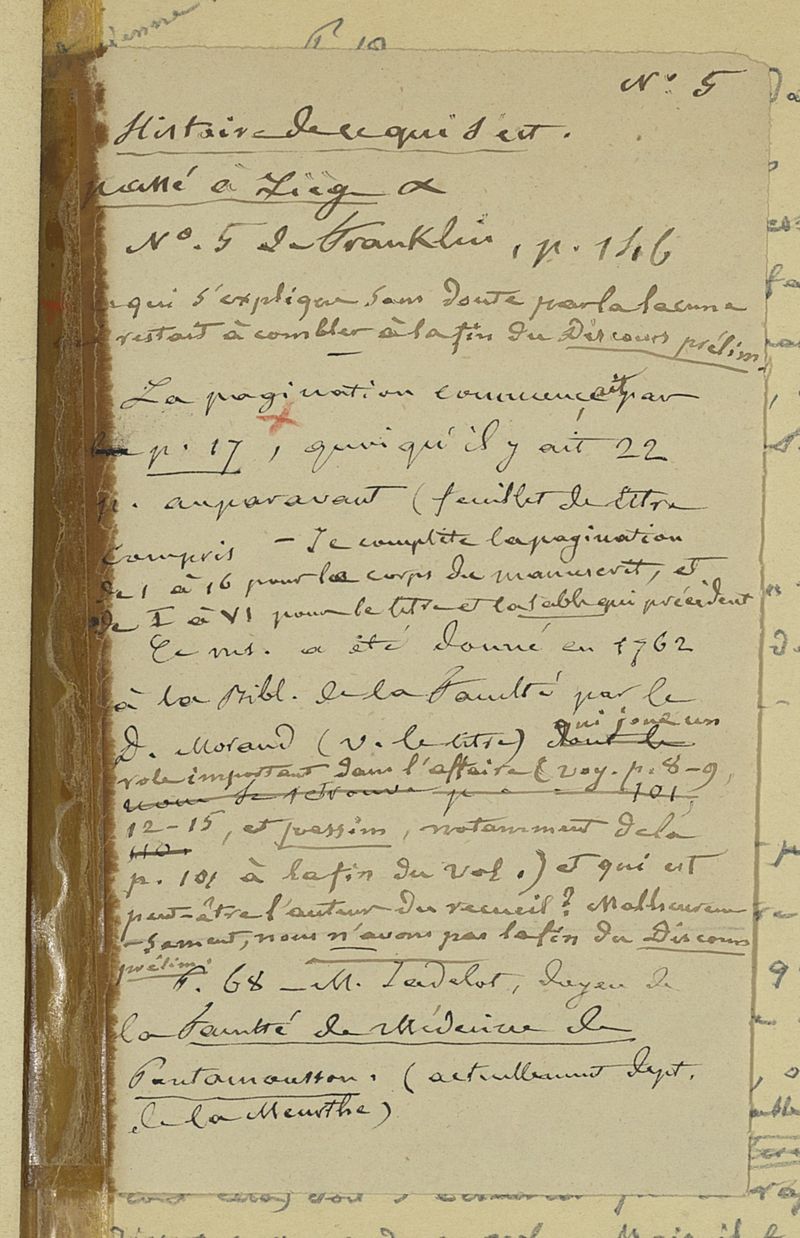 P 10
N° 5
Histoire de ce qui s'est
passé à Liège &
N°. 5 de Franklin, p. 146
qui s'explique sans doute par la lacune
restait à combler à la fin du Discours prélim.
La pagination commençait par
p. 17, quoiqu'il y ait 22
p. auparavant (feuillet de titre
compris – Je complète la pagination
de 1 à 16 pour le corps du manuscrit, et
de I à VI pour le titre et la table qui précèdent
Ce ms. a été donné en 1762
à la Bibl. de la Faculté par le
qui joue un
D. Morand (v. le titre) dont le
role important dans l'affaire (voy. p. 8–9,
nom se retrouve p 101,
12–15, et passim, notamment de la
110.
p. 101 à la fin du vol.) et qui est
peut-être l'auteur du recueil? Malheureu
-sement, nous n'avons pas la fin du Discours
prélim:
P. 68 – M. Jadelot, doyen de
la Faculté de Médecine de
Pontamousson. (actuellement dépt.
de la Meurthe)